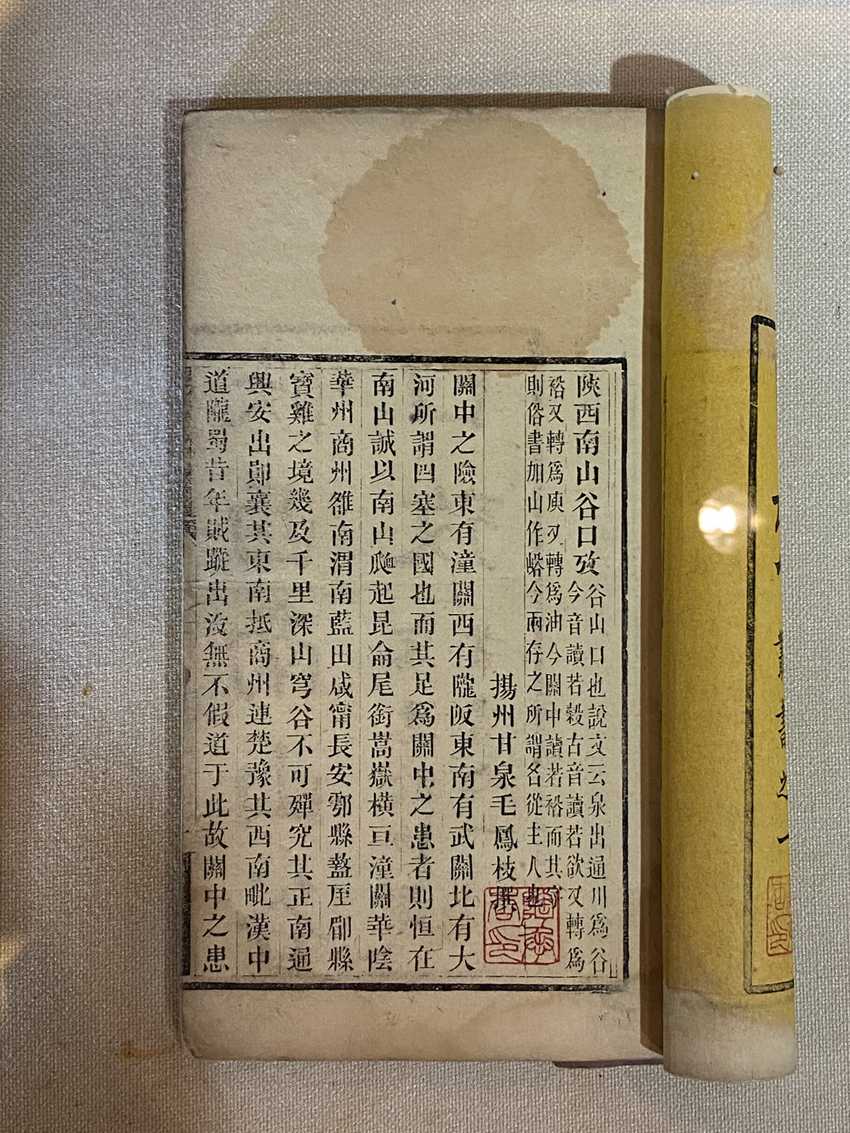 陝西南山谷口攷
谷山口也說文云泉出通川爲谷
今音讀若穀古音讀若欲又轉爲
裕又轉爲庾又轉爲油今關中讀若裕而其字
則俗書加山作峪今兩存之所謂名從主人也
揚州甘泉毛鳳枝撰
關中之險東有潼關西有隴阪東南有武關北有大
河所謂四塞之國也而其足爲關中之患者則恒在
南山誠以南山𡾰起昆侖尾銜嵩嶽橫亘潼關華陰
華州商州雒南渭南藍田咸甯長安鄠縣盩厔郿縣
寶雞之境幾及千里深山穹谷不可殫究其正南通
興安出鄖襄其東南抵商州連楚豫其西南毗漢中
道隴蜀昔年賊蹤出沒無不假道于此故關中之患